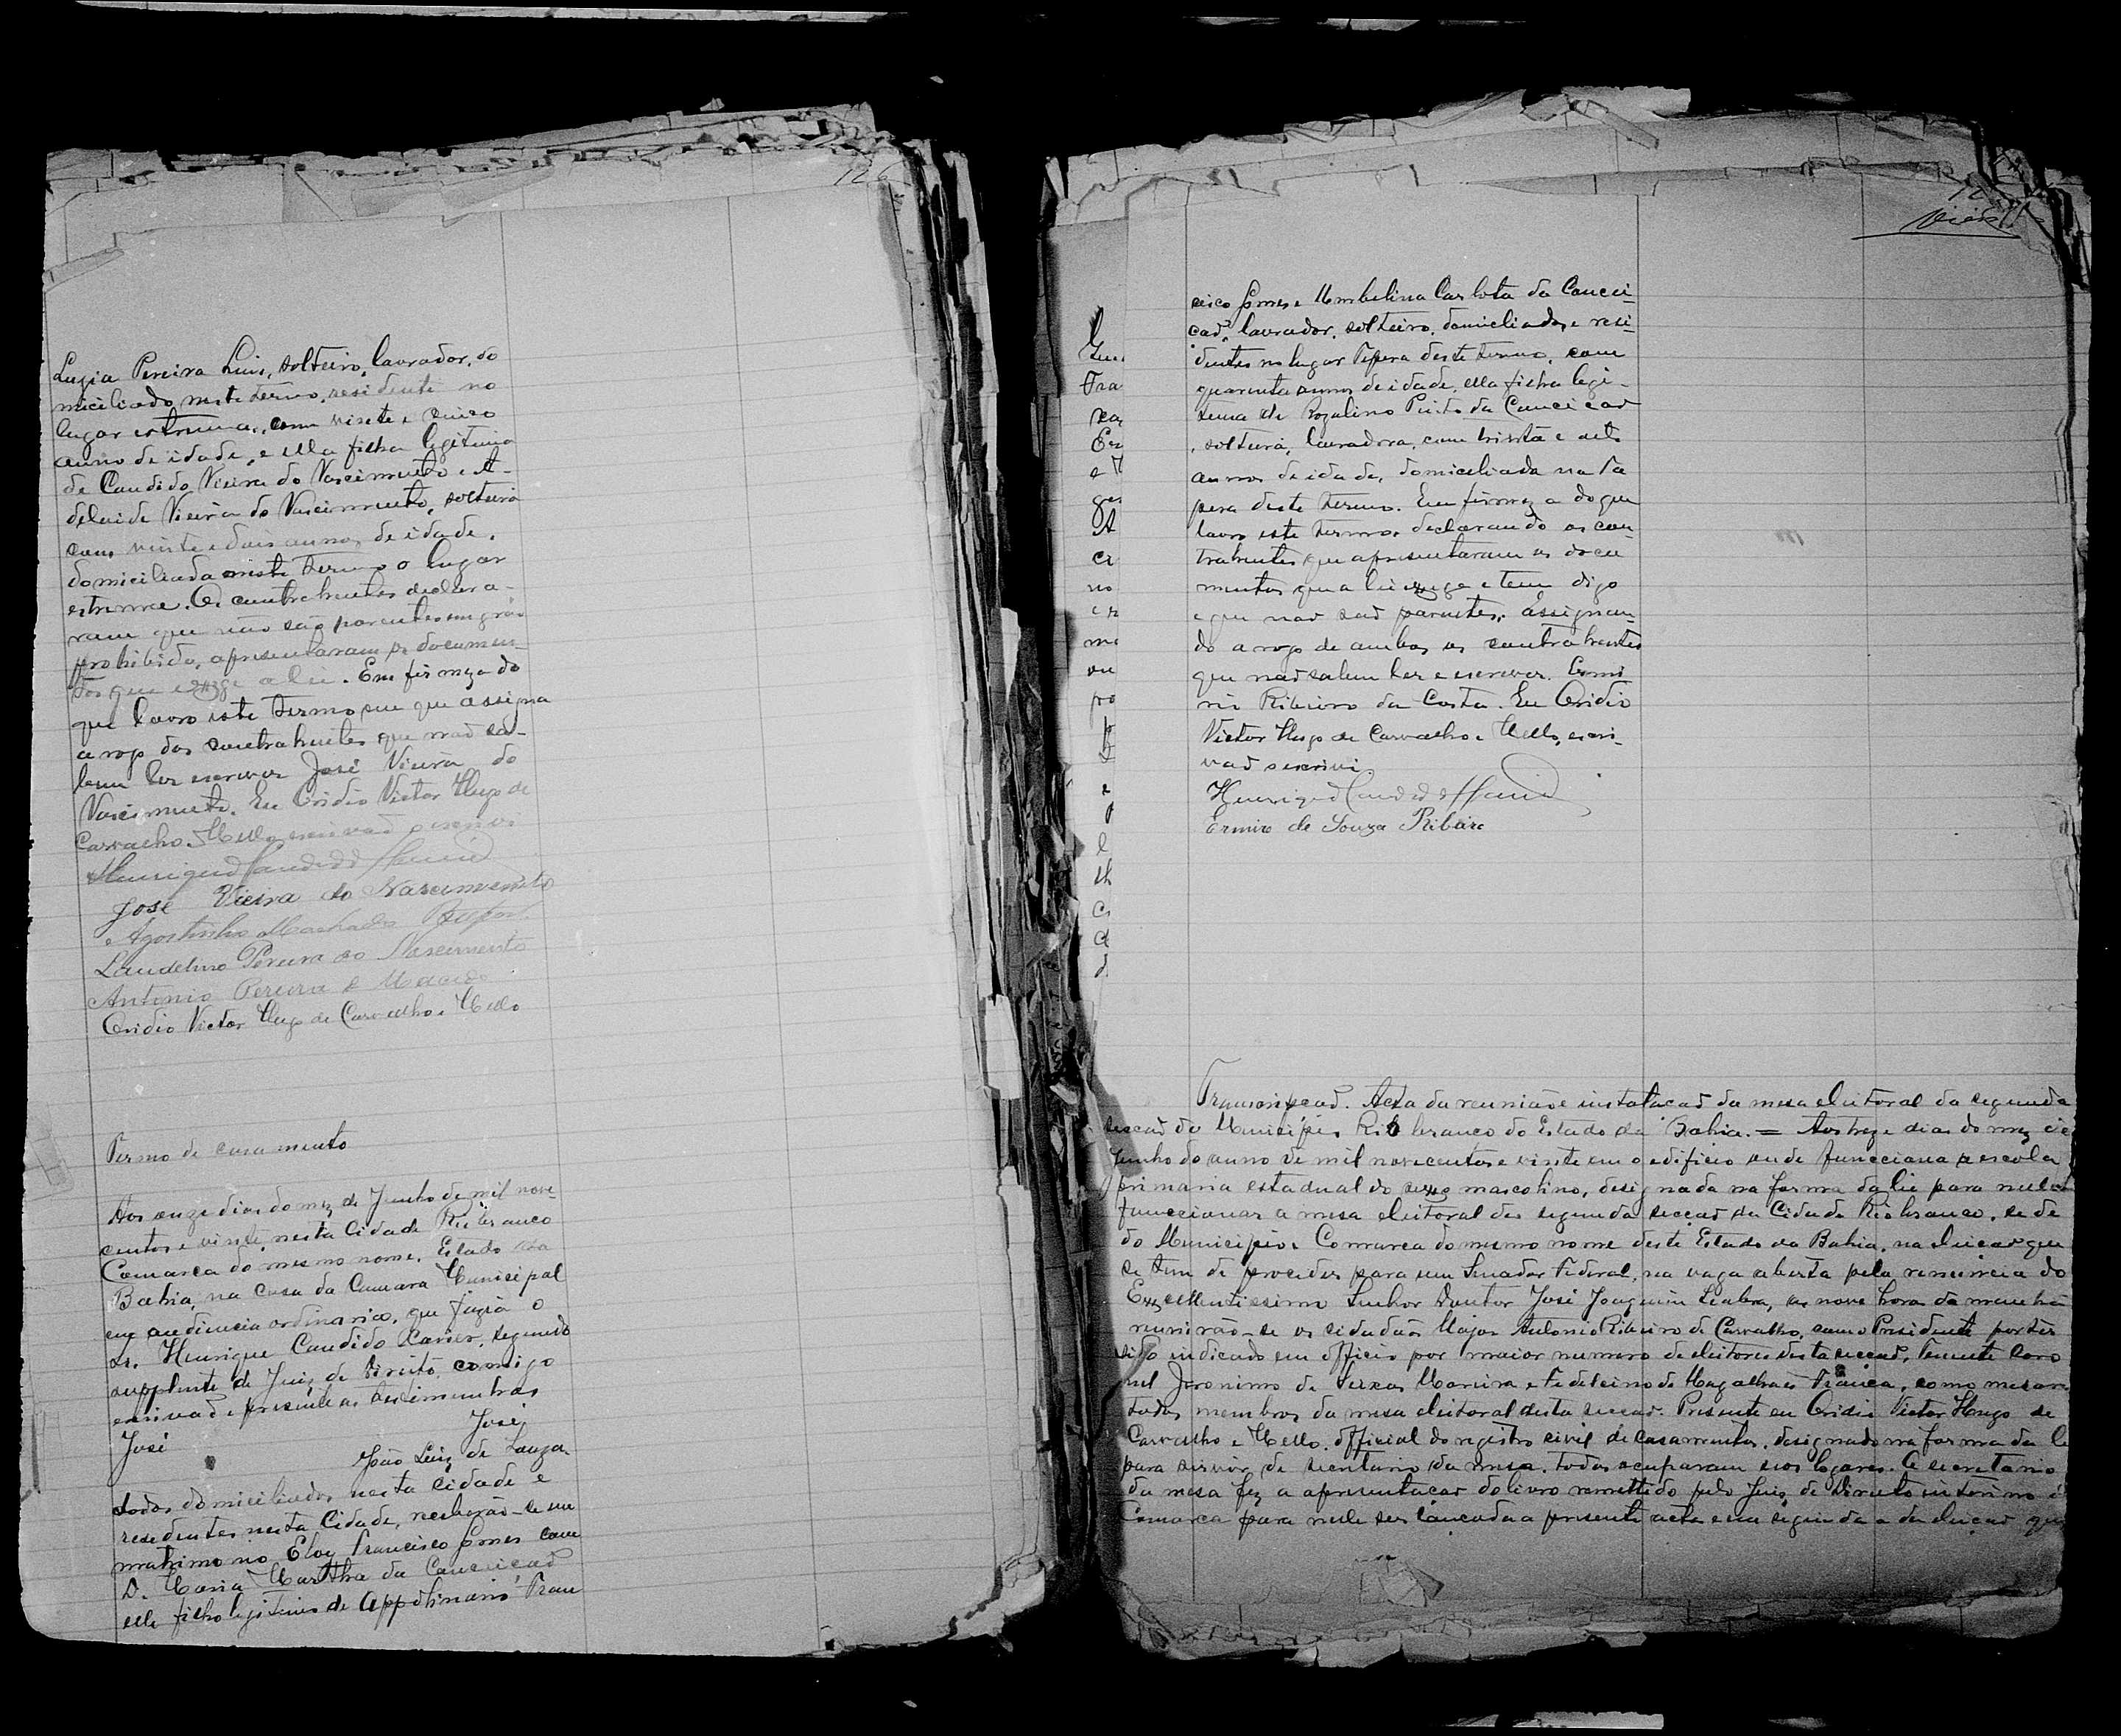 126
Luzia Pereira Luis, solteiro, lavrador, do
miciliado neste termo, residente no
lugar estrema, com vinte e cinco
anno de idade, e ella filha legitima
de Candido Vieira do Nascimento e A-
delaide Vieira do Nascimento, solteira
com vinte e dois annos de idade,
domiciliada neste termo o lugar
estrema. Os contrahentes declara-
ram que não são parentes em grão
prohibido, apresentaram os documen-
tos que exige a lei. Em firmeza do
que lavro este termo em que assigna
a rogo dos contrahentes que nao sa-
bem ler escrever José Vieira do
Nascimento. Eu Ovidio Victor Hugo de
Carvalho e Mello escrivaõ o escrevi
Henrique Candido
José Vieira do Nascimento
Agostinho Machado
Laudelino Pereira do Nascimento
Antonio Pereira de Macedo
Ovidio Victor Hugo de Carvalho e Mello
Termo de casamento
Aos onze dias do mez de Junho de mil nove-
centos e vinte, nesta Cidade Rio branco
Comarca do mesmo nome, Estado da
Bahia, na casa da Camara Municipal
em audiencia ordinaria, que fazia o
Sr. Henrique Candido Xavier, segundo
supplente de Juiz de Direito, comigo
escrivaõ e presente as testimunhas
José José
João Luiz de Souza
todos domiciliados nesta cidade e
residentes nesta Cidade, receberão-se em
matrimonio Eloy Francisco Gomes com
D. Maria Martha da Conceicaõ
elle filho legitimo de Appolinario Fran
cisco Gomes e Umbelina Carlota da Concei-
caõ, lavrador, solteiro, domiciliados e resi-
dentes no lugar Tapera deste termo, com
quarenta annos de idade, ella filha legi-
tima de Rozalino Pinto da Conceicaõ
, solteira, lavradora, com trinta e oito
annos de idade, domiciliada na Ta
pera deste termo. Em firmeza do que
lavro este termo, declarando os con-
trahentes que apresentaram os docu
mentos que a lei exige e tem digo
e que naõ saõ parentes, assignan-
do a rogo de ambos os contrahentes
que naõ sabem ler e escrever. Ermi
rio Ribeiro da Costa. Eu Ovidio
Victor Hugo de Carvalho e Mello, escri-
vaõ o escrivi
Henrique Candido
Ermiro de Souza Ribeiro
Transcripçaõ. Acta da reuniaõ e instalacaõ da mesa eleitoral da segunda
seccaõ do Municipio Rio branco do Estado da Bahia. = Aos treze dias do mez de
Junho do anno de mil novecentos e vinte em o edificio onde funcciona a escola
primaria estadual do sexo mascolino, designada na forma da lei para nella
funccionar a mesa eleitoral da segunda secçaõ da Cidade Rio branco, se de
do Municipio e Comarca do mesmo nome deste Estado da Bahia, na eleicaõ que
se tem de proceder para um Senador Federal, na vaga aberta pela renuncia do
Excellentissimo Senhor Doutor José Joaquim Seabra, as nove horas da manhã
reunirão-se os cidadãos Major Antonio Ribeiro de Carvalho, como Presidente por ter
sido indicado em officio por maior numero de eleitores desta seccaõ, tenente Coro
nel Jeronimo de Seixas Moreira e Fedelcino de Magalhaes França, como mesarios
todos membros da mesa eleitoral desta seccaõ. Presente eu Ovidio Victor Hugo de
Carvalho e Mello, official do registro civil de casamentos, designado na forma da lei
para servir de secretario da mesa. Todos ocuparam seos logares. O secretario
da mesa fez a apresentacaõ do livro remettido pelo Juiz de Direito interino
Comarca para nelle ser lancada a presente acta e em seguida a da eleiçaõ que